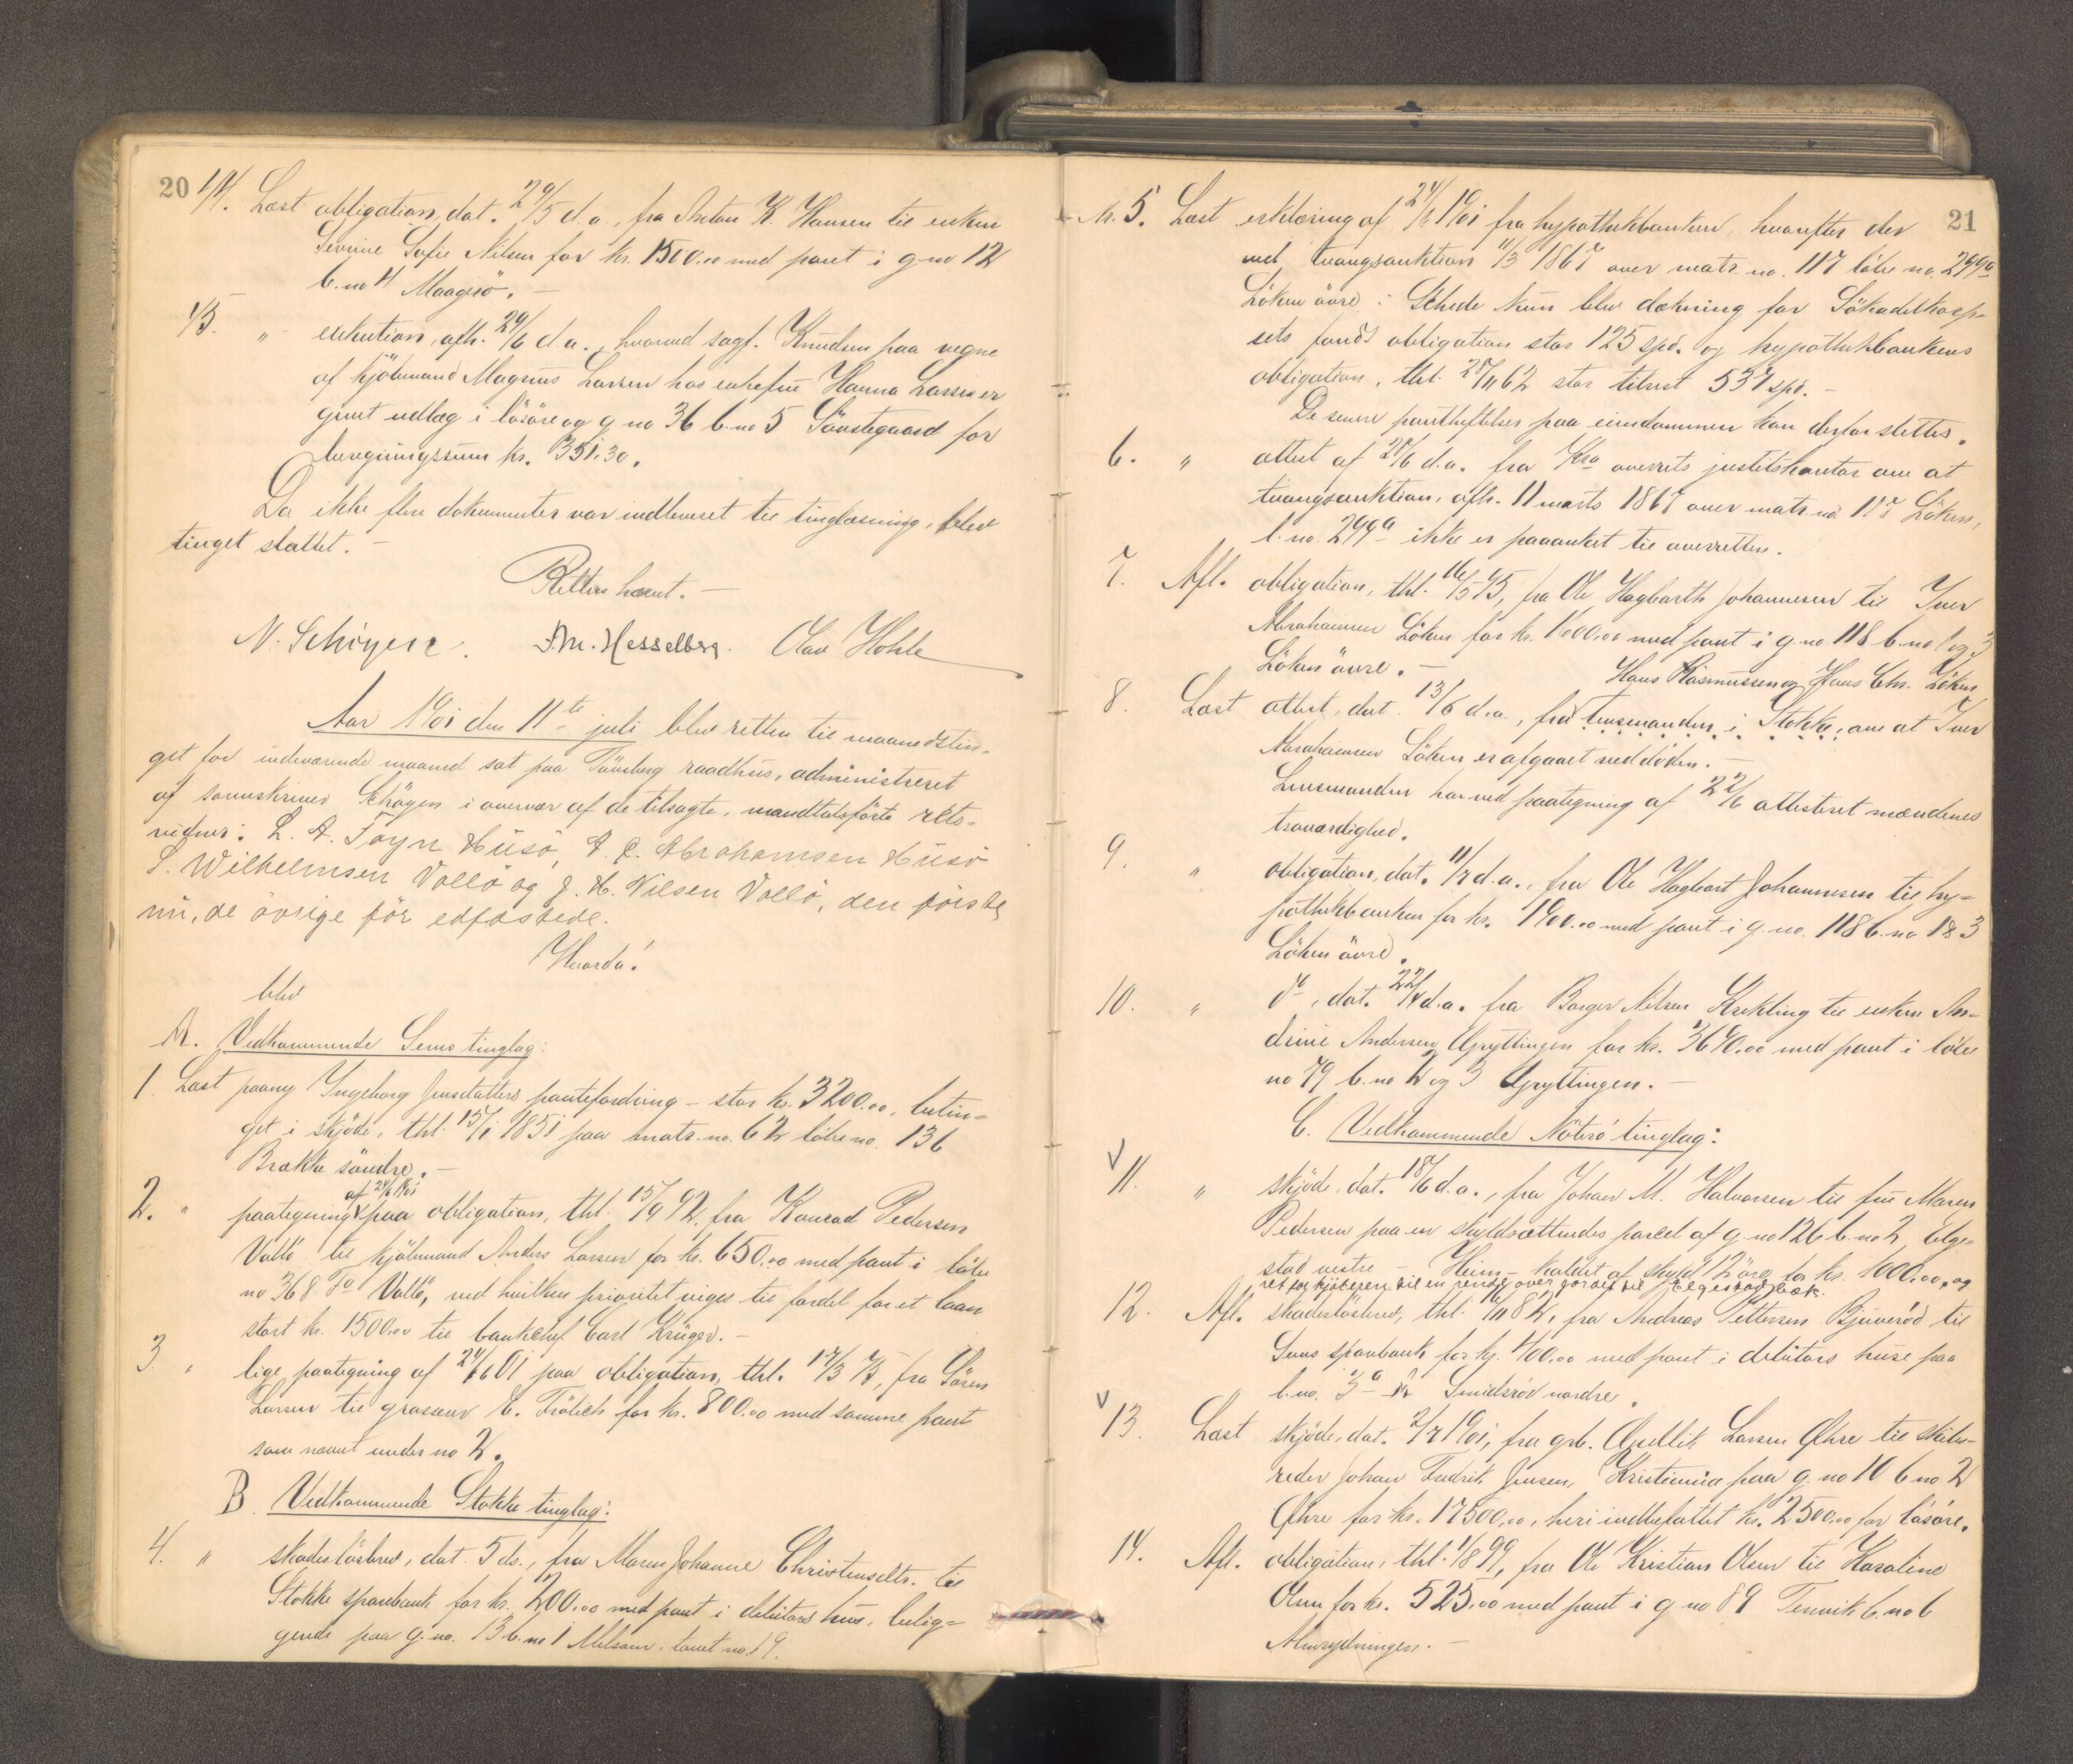 20
14. Læst obligation, dat. 29/5 d. a., fra Anton K. Hansen til enken
Severine Sofie Nilsen for kr. 1500.00 med pant i g. no 12
b. no 4 Maagerö. –
15. " exekution, afh. 24/6 d. a., hvorved sagf. Knudsen paa vegne
af kjöbmand Magnus Larsen hos enkefru Hanna Larsen er
givet udlæg i lösöre og g. no 36 b. no 5 Söndtegaard for
beregningssum kr. 351.30.
Da ikke flere dokumenter var indleveret til tinglæsning, blev
tinget sluttet. –
Retten hævet. –
N. Schöyen. F. M. Hesselberg. Olav Hohle
Aar 1901 den 11te juli blev retten til maanedstin-
get for indeværende maaned sat paa Tönsberg raadhus, administreret
af sorenskriver Schöyen i overvær af de tilsagte, mandtalsförte rets-
vidner: L. A. Foyn Husö, A. C. Abrahamsen Husö
S. Wilhelmsen Vallö og J. H. Nilsen Vallö, den förste
nu, de övrige för edfæstede.
Hvorda!
blev
A. Vedkommende Sems tinglag:
1. Læst paany Ingeborg Jensdatters pantefordring – stor kr. 3200.00, betin-
get i skjöde, thl. 15/1 1851 paa matr. no. 62 löbe no. 136
Brække söndre. –
af 24/6 1901
2. " paategning paa obligation, thl. 15/9 92, fra Konrad Pedersen
Vallö til kjöbmand Anders Larsen for kr. 650.00 med pant i löbe
no 368 Vallö, ved hvilken prioritet viges til fordel for et laan
stort kr. 1500.00 til bankchef Carl Krüger. –
3 " lige paategning af 24/6 01 paa obligation, thl. 17/3 75, fra Sören
Larsen til grosserer C. Frölich for kr. 800.00 med samme pant
som nævnt under no 2.
B. Vedkommende Stokke tinglag:
4. " skadeslösbrev, dat. 5 ds., fra Maren Johanne Christensdtr. til
Stokke sparebank for kr. 200.00 med pant i debitors hus, belig-
gende paa g. no. 13 b. no 1 Melsom, taxt no. 19.
21
Nr. 5. Læst erklæring af 24/6 1901 fra hypothekbanken, hvorefter der
ved tvangsauktion 11/3 1867 over matr. no. 117 löbe no. 299a
Löken övre i Skjede kun blev dækning for Sökadetkorp-
sets fonds obligation stor 125 spd. og hypothekbankens
obligation, thl. 28/11 62 stor tilrest 537 spd. –
De senere panthæftelser paa eiendommen kan derfor slettes.
6. " attest af 28/6 d. a. fra Kra overrets justitskontor om at
tvangsauktion, afh. 11 marts 1867 over matr. no. 117 Löken,
l. no. 299a ikke er paaanket til overretten.
7. Afl. obligation, thl. 16/5 95, fra Ole Hagbarth Johannesen til Iver
Abrahamsen Löken for kr. 1600.00 med pant i g. no 118 b. no 1 og 3
Löken övre. –
Hans Rasmussen og Hans Chr. Löken
8. Læst attest, dat. 13/6 d. a., fra lensmanden i Stokke, om at Iver
Abrahamsen Löken er afgaaet ved döden. –
Lensmanden har ved paategning af 22/6 attesteret mændenes
troværdighed.
9. " obligation, dat. 11/7 d. a., fra Ole Hagbart Johannesen til hy-
pothekbanken for kr. 1900.00 med pant i g. no. 118 b. no 1 & 3
Löken övre.
10. " do, dat. 22/4 d. a. fra Borger Nilsen Krekling til enken An-
drine Andersen Gryttingen for kr. 3640.00 med pant i löbe
no 79 b. no 2 og 3 Gryttingen. –
C. Vedkommende Nöterö tinglag:
11. " skjöde, dat. 18/6 d. a., fra Johan M. Halvorsen til fru Maren
Pedersen paa en skyldsættendes parcel af g. no 126 b. no 2, Elge-
stad vestre – Heim – kaldet af skyld 12 öre for kr. 1000.00, og
ret for kjöberen til en rende over jordet til Elgestadbæk.
12. Afl. skadeslösbrev, thl. 82, fra Andreas Pettersen Bjuveröd til
Sems sparebank for kr. 400.00 med pant i debitors huse paa
l. no. 3a Smidsröd nordre.
13. Læst skjöde, dat. 2/7 1901, fra grb. Larsen Ohre til skibs-
reder Johan Fredrik Jensen, Kristiania paa g. no 10 b. no 2
Ohre for kr. 17500.00, heri indbefattet kr. 2500.00 for lösöre.
14. Afl. obligation, thl. 1/8 99, fra Ole Kristian Olsen til Karoline
Olsen for kr. 525.00 med pant i g. no 89 Tenvik b. no 6
Almrydningen. –